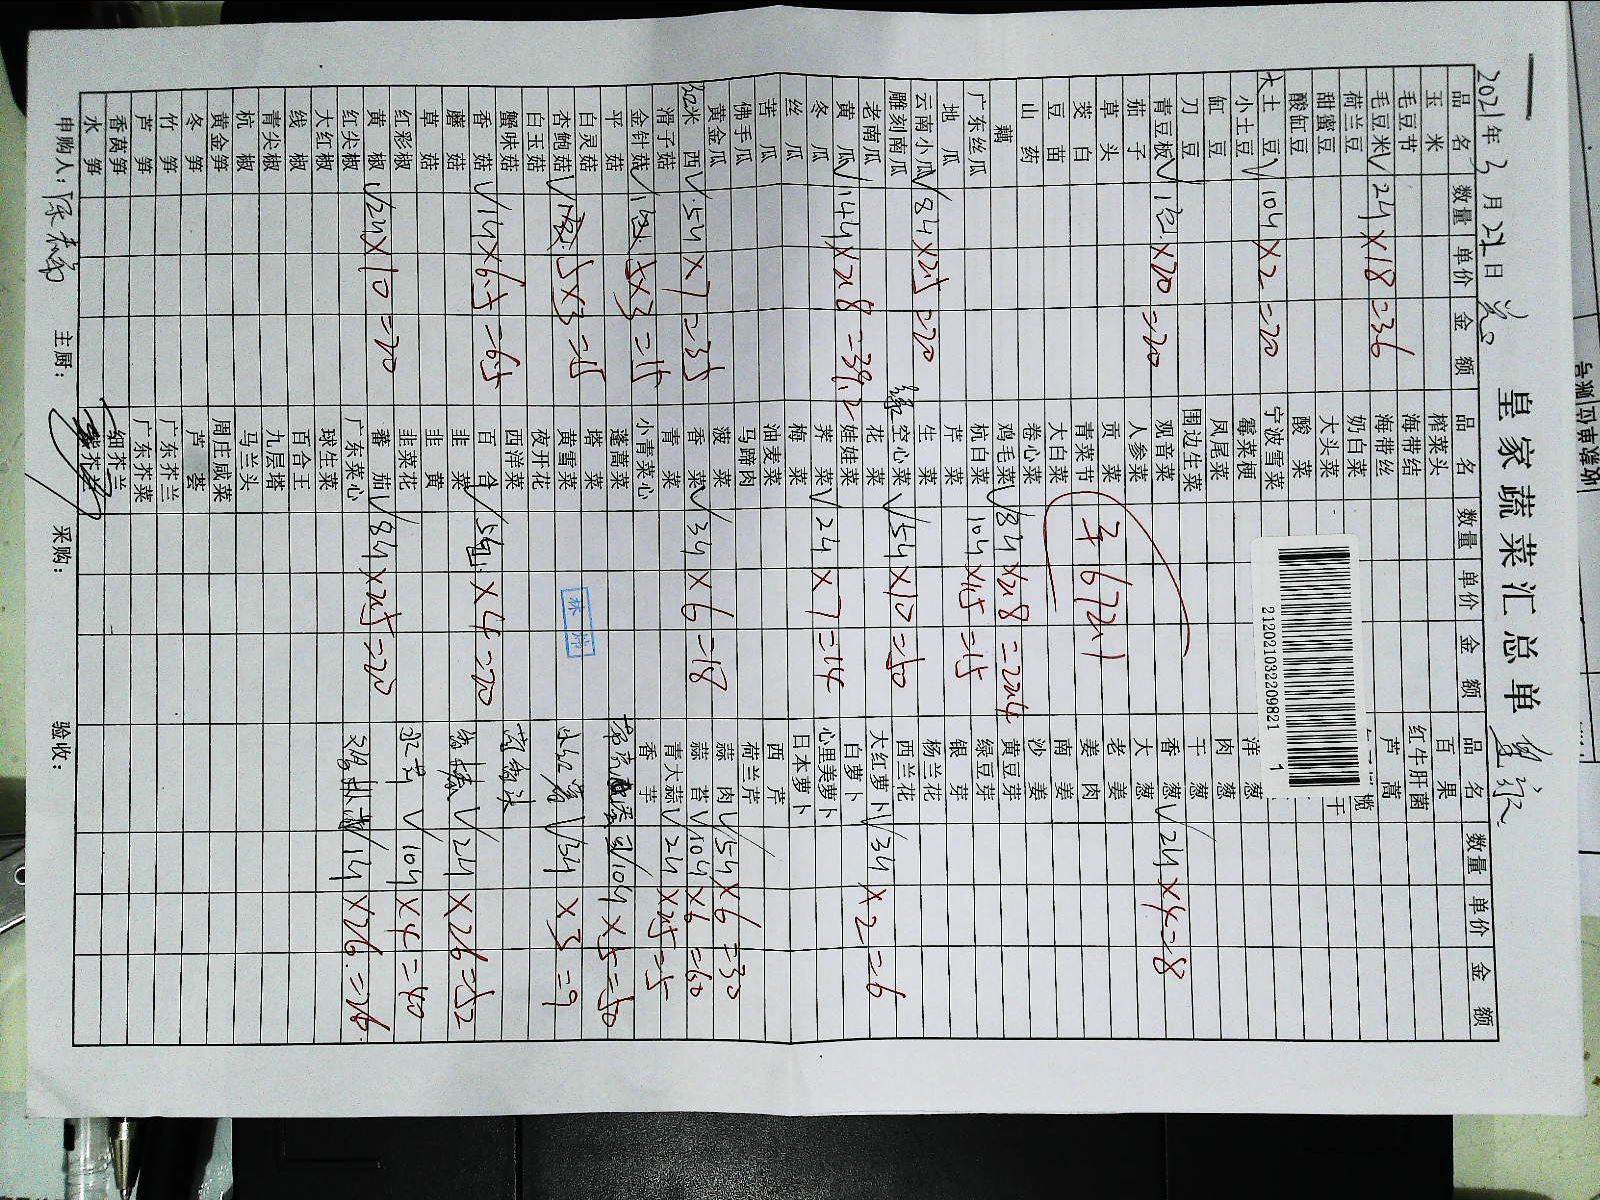 皇家蔬菜汇总单
2021年3月22日
品名 数量 单价 金额 品名 数量 单价 金额 品名 数量 单价 金额
玉米 榨菜头 百果
毛豆节 海带结 红牛肝菌
毛豆米√ 2斤×18=36 海带丝 芦蒿
荷兰豆 奶白菜
甜蜜豆 大头菜
酸缸豆 酸菜
大土豆√ 10斤×2=20 宁波雪菜
小土豆 霉菜梗 洋葱
缸豆 凤尾菜 肉葱
刀豆 围边生菜 干葱
青豆板√ 1包×20=20 观音菜 香葱√ 2斤×4=8
茄子 人参菜 大葱
草头 贡菜 老姜
茭白 青菜节 姜肉
豆苗 大白菜 南姜
山药 卷心菜 沙姜
藕 鸡毛菜√ 8斤×2.8=22.4 黄豆芽
广东丝瓜 杭白菜 10斤×1.5=15 绿豆芽
地瓜 芹菜 银芽
云南小瓜√ 8斤×2.5=20 生菜 杨兰花
雕刻南瓜 空心菜√ 5斤×10=50 西兰花
老南瓜 花菜 大红萝卜√ 3斤×2=6
黄瓜√ 14斤×2.8=39.2 娃娃菜 白萝卜
冬瓜 荠菜√ 2斤×7=14 心里美萝卜
丝瓜 梅菜 日本萝卜
苦瓜 油麦菜 西芹
佛手瓜 马蹄肉 荷兰芹
黄金瓜 菠菜 蒜肉√ 5斤×6=30
西√ 5斤×7=35 香菜√ 3斤×6=18 蒜苔√ 10斤×6=60
滑子菇 青菜 青大蒜√ 2斤×2.5=5
金针菇√ 1包 5×3=15 小青菜心 香芋
平菇 蓬蒿菜 10斤×5=50
白灵菇 塔菜
杏鲍菇√ 5×3=15 黄雪菜 √3斤×3=9
白玉菇 夜开花
蟹味菇 西洋菜
香菇√ 14×6.5=65 百合√ 5包×4=20
蘑菇 韭菜 √2斤×26=52
草菇 韭黄
红彩椒 韭菜花 √10斤×4=40
黄椒√ 2斤×10=20 蕃茄√ 8斤×2.5=20
红尖椒 广东菜心 1斤×26=26
大红椒 球生菜
线椒 百合王
青尖椒 九层塔
杭椒 马兰头
黄金笋 周庄咸菜
冬笋 芦荟
竹笋 广东芥兰
芦笋 广东芥菜
香莴笋 细芥兰
水笋
3 672.1
212021032209821 1
申购人： 主厨： 采购： 验收：